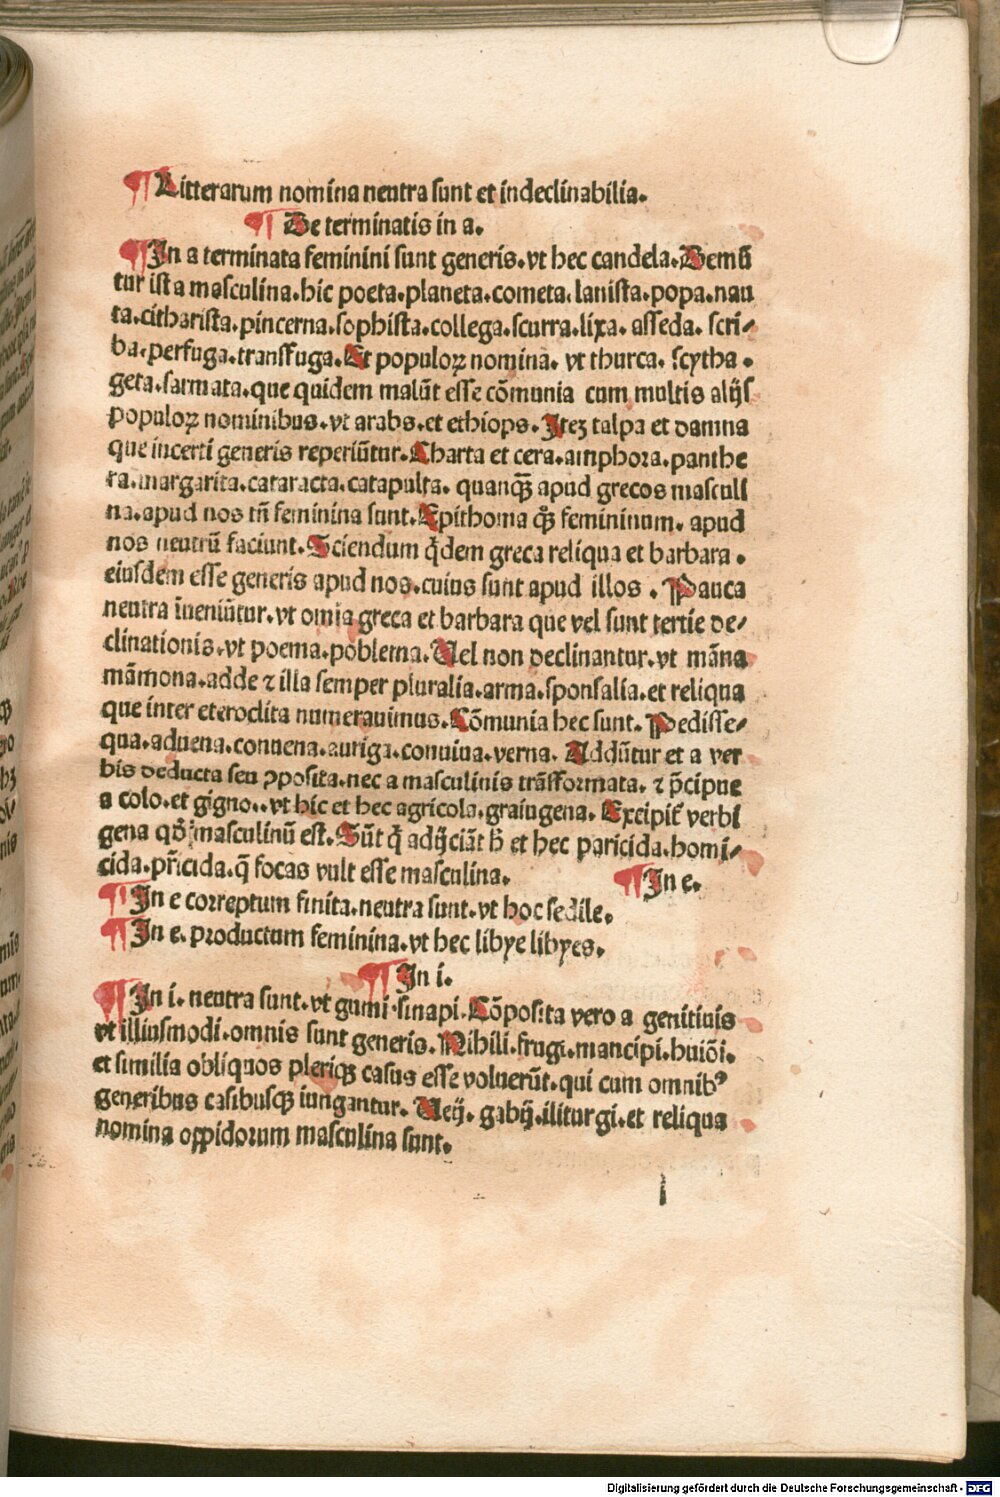 ¶Litterarum nomina neutra sunt et indeclinabilia.
¶De terminatis in a.
¶In a terminata feminini sunt generis.vt hec candela.Demū
tur ista masculina.hic poeta.planeta.cometa.lanista.popa.nau
ta.citharista.pincerna.sophista.collega.scurra.lixa. asseda. scri⸗
ba.perfuga.transfuga.Et populoꝝ nomina. vt thurca. scytha.
geta.sarmata.que quidem malūt esse cōmunia cum multis alijs
populoꝝ nominibus.vt arabs.et ethiops.Iteꝫ talpa et damna
que incerti generis reperiūtur.Charta et cera.amphora.panthe
ra.margarita.cataracta.catapulta. quanqꝫ̄ apud grecos masculi
na.apud nos tn̄ feminina sunt.Epithoma qꝫ̄ femininum. apud
nos neutrū faciunt.Sciendum q̇dem greca reliqua et barbara.
eiusdem esse generis apud nos.cuius sunt apud illos. Pauca
neutra īueniūtur.vt omia greca et barbara que vel sunt tertie de⸗
clinationis.vt poema.poblema.Uel non declinantur.vt māna
māmona.adde ⁊ illa semper pluralia.arma.sponsalia.et reliqua
que inter eteroclita numerauimus.Cōmunia hec sunt. Pedisse⸗
qua.aduena.conuena.auriga.conuiua.verna. Addūtur et a ver
bis deducta seu ꝯposita.nec a masculinis trāsformata. ⁊ p̄cipue
a colo.et gigno..vt hic et hec agricola.graiugena. Excipit̄ verbi
gena qđ masculinū est.Sūt q̇ adijciāt h̄ et hec paricida.homi⸗
cida.pr̄icida.q̄ focas vult esse masculina.
¶In e.
¶In e correptum finita.neutra sunt.vt hoc sedile.
¶In e. productum feminina.vt hec libye libyes.
¶In i.
¶In i. neutra sunt.vt gumi.sinapi.Cōposita vero a genitiuis
vt illiusmodi.omnis sunt generis.Nihili.frugi.mancipi.huiōi.
et similia obliquos pleriqꝫ casus esse voluerūt.qui cum omnibꝰ
generibus casibusqꝫ iungantur. Ueij. gabij.iliturgi.et reliqua
nomina oppidorum masculina sunt.